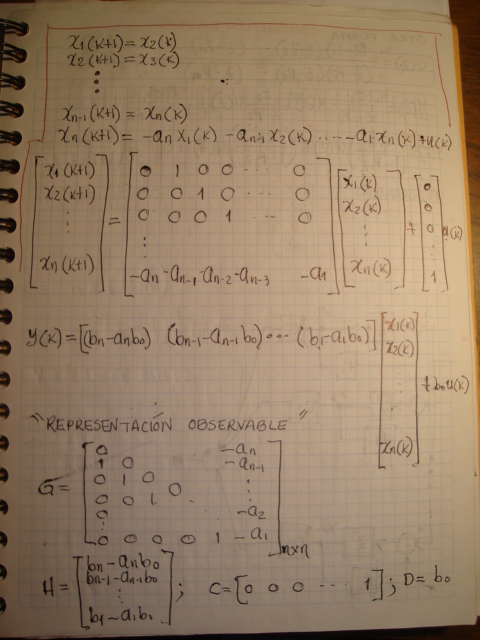 x₁(k+1) = x₂(k)
x₂(k+1) = x₃(k)
⋮
xₙ₋₁(k+1) = xₙ(k)
xₙ(k+1) = -aₙ x₁(k) -aₙ₋₁ x₂(k) ⋯ -a₁ xₙ(k) + u(k)
[x₁(k+1) x₂(k+1) ⋮ xₙ(k+1)] = [0 1 0 0 ⋯ 0; 0 0 1 0 ⋯ 0; 0 0 0 1 ⋯ 0; ⋮; -aₙ -aₙ₋₁ -aₙ₋₂ -aₙ₋₃ -a₁] [x₁(k) x₂(k) ⋮ xₙ(k)] + [0 0 0 ⋮ 1] u(k)
y(k) = [(bₙ-aₙb₀) (bₙ₋₁-aₙ₋₁b₀) ⋯ (b₁-a₁b₀)] [x₁(k) x₂(k) ⋮ xₙ(k)] + b₀u(k)
"REPRESENTACIÓN OBSERVABLE"
G = [0 -aₙ; 1 0 -aₙ₋₁; 0 1 0 ⋮; 0 0 1 0; 0 ⋮ -a₂; 0 0 0 0 1 -a₁] n×n
H = [bₙ-aₙb₀ bₙ₋₁-aₙ₋₁b₀ ⋮ b₁-a₁b₀] ; C = [0 0 0 ⋯ 1] ; D = b₀